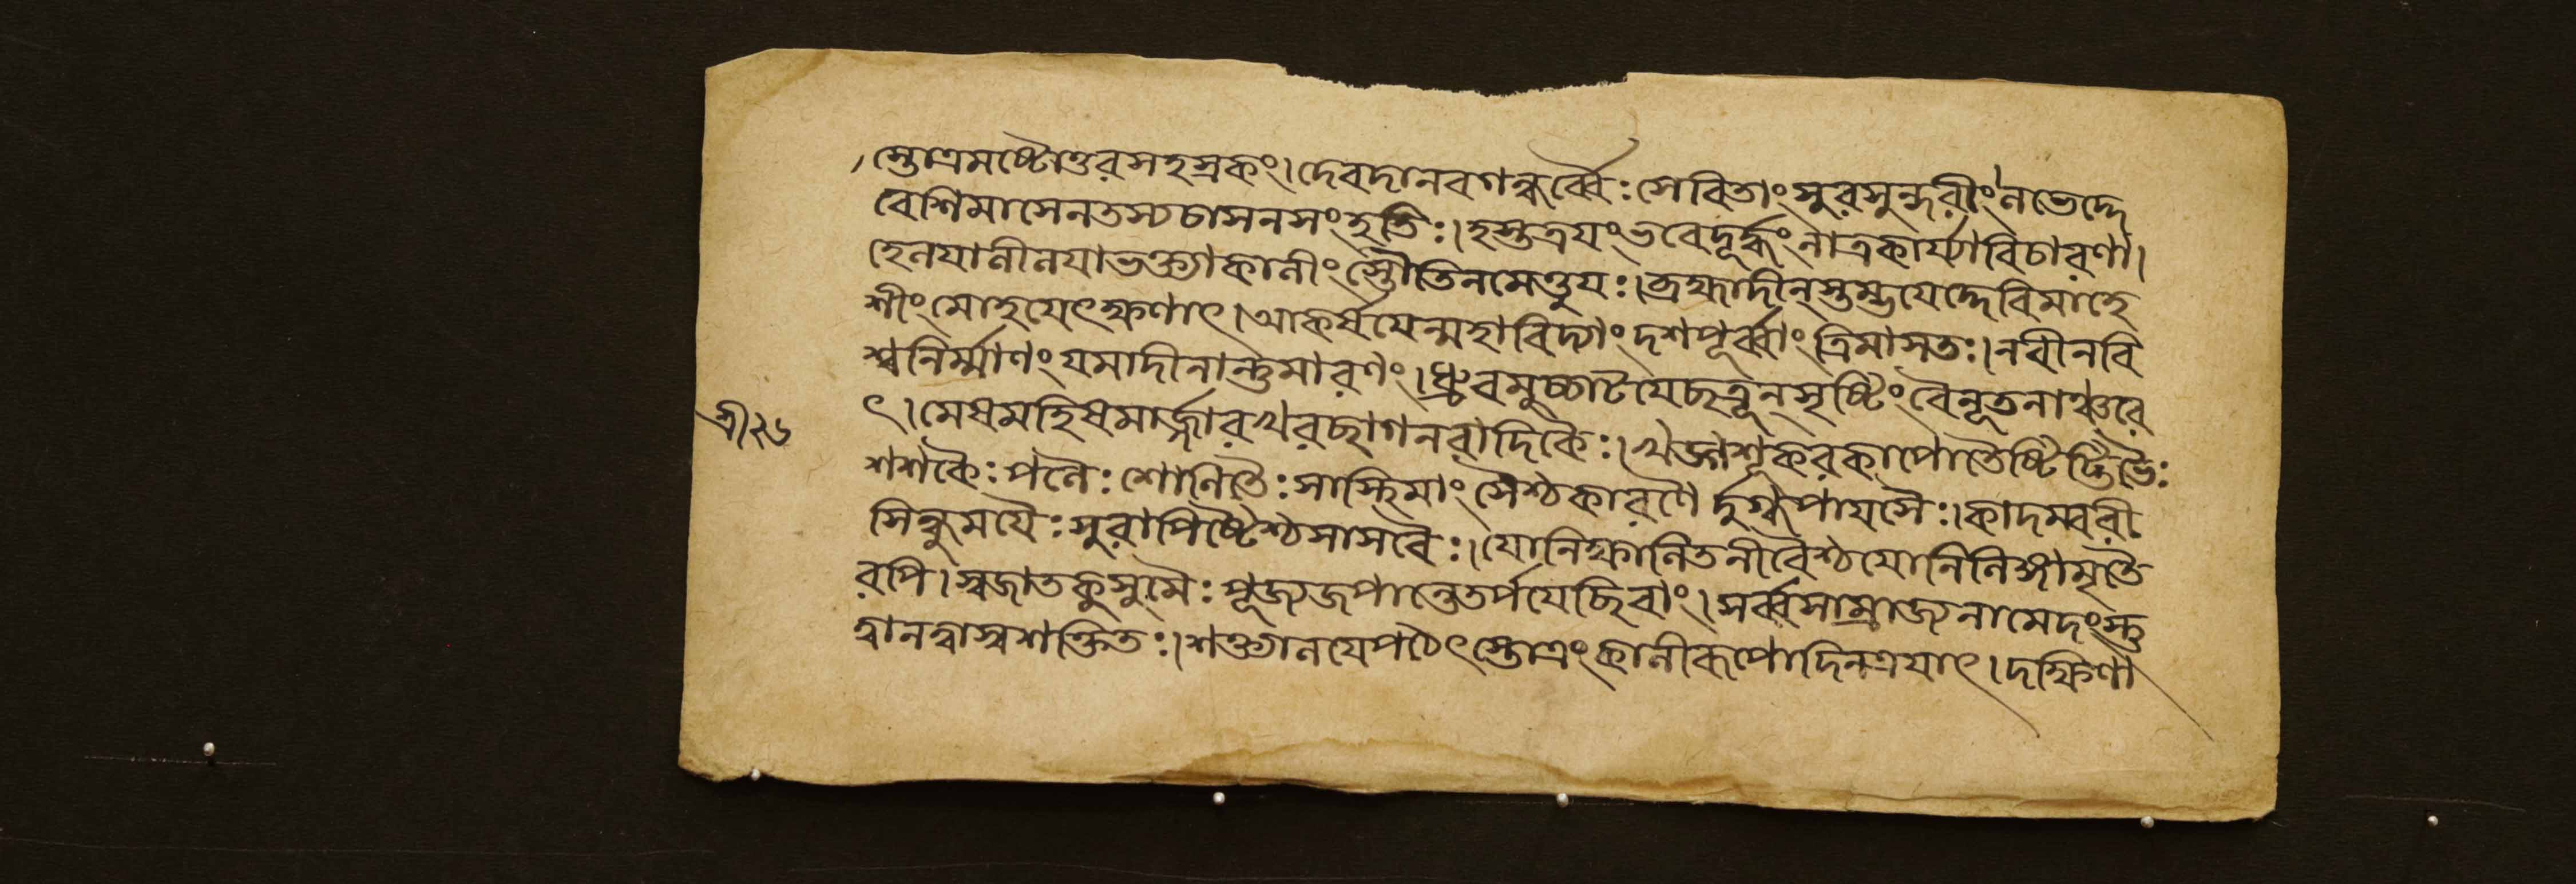 স্তোত্রমষ্টোত্তরসহস্রকং।দেবদানবগন্ধর্ব্বৈঃসেবিতাংসুরসুন্দরীং নভেদ্দে
বেশিমাসেনতস্যচাসনসংহৃতিঃ।হস্তত্রয়ংভবেদূর্দ্ধ্বংনাত্রকার্য্যাবিচারণা।
হেনযানীনযাভক্ত্যাকালীংস্তৌতিনমেণ্ডুযঃ।ব্রহ্মাদীন্স্তম্ভযেদ্দেবিমাহে
শীংমোহযেৎক্ষণাৎ।আকর্ষযেন্মহাবিদ্যাংদশপূর্ব্বাংত্রিমাসতঃ।নবীনবি
শ্বনির্ম্মাণংযমাদীনান্তুমারণং।ধ্রুবমুচ্চাটযেচ্ছত্রূন্সৃষ্টিংবৈনূতনাঞ্চরে
ৎ।মেষমহিষমার্জ্জারখরছাগনরাদিকৈঃ।খড্গশূকরকাপোতৈষ্টিট্টিভৈঃ
শশকৈঃপলৈঃশোনিতৈঃসাস্থিমাংসৈশ্চকারণৈর্দুগ্ধপাযসৈঃ।কাদম্বরী
সিন্ধুমযৈঃসুরাপিষ্টৈশ্চসাসবৈঃ।যোনিক্ষালিততনীবৈশ্চযোনিলিঙ্গামৃতৈ
রপি।স্বজাতকুসুমৈঃপূজ্যজপান্তেতর্পযেচ্ছিবাং।সর্ব্বসাম্রাজ্যনামেদংস্তু
ত্বানত্বাস্বশক্তিতঃ।শক্ত্যানযেপঠেৎস্তোত্রংকালীরূপোদিনত্রযাৎ।দক্ষিণা
শ্রী২৬